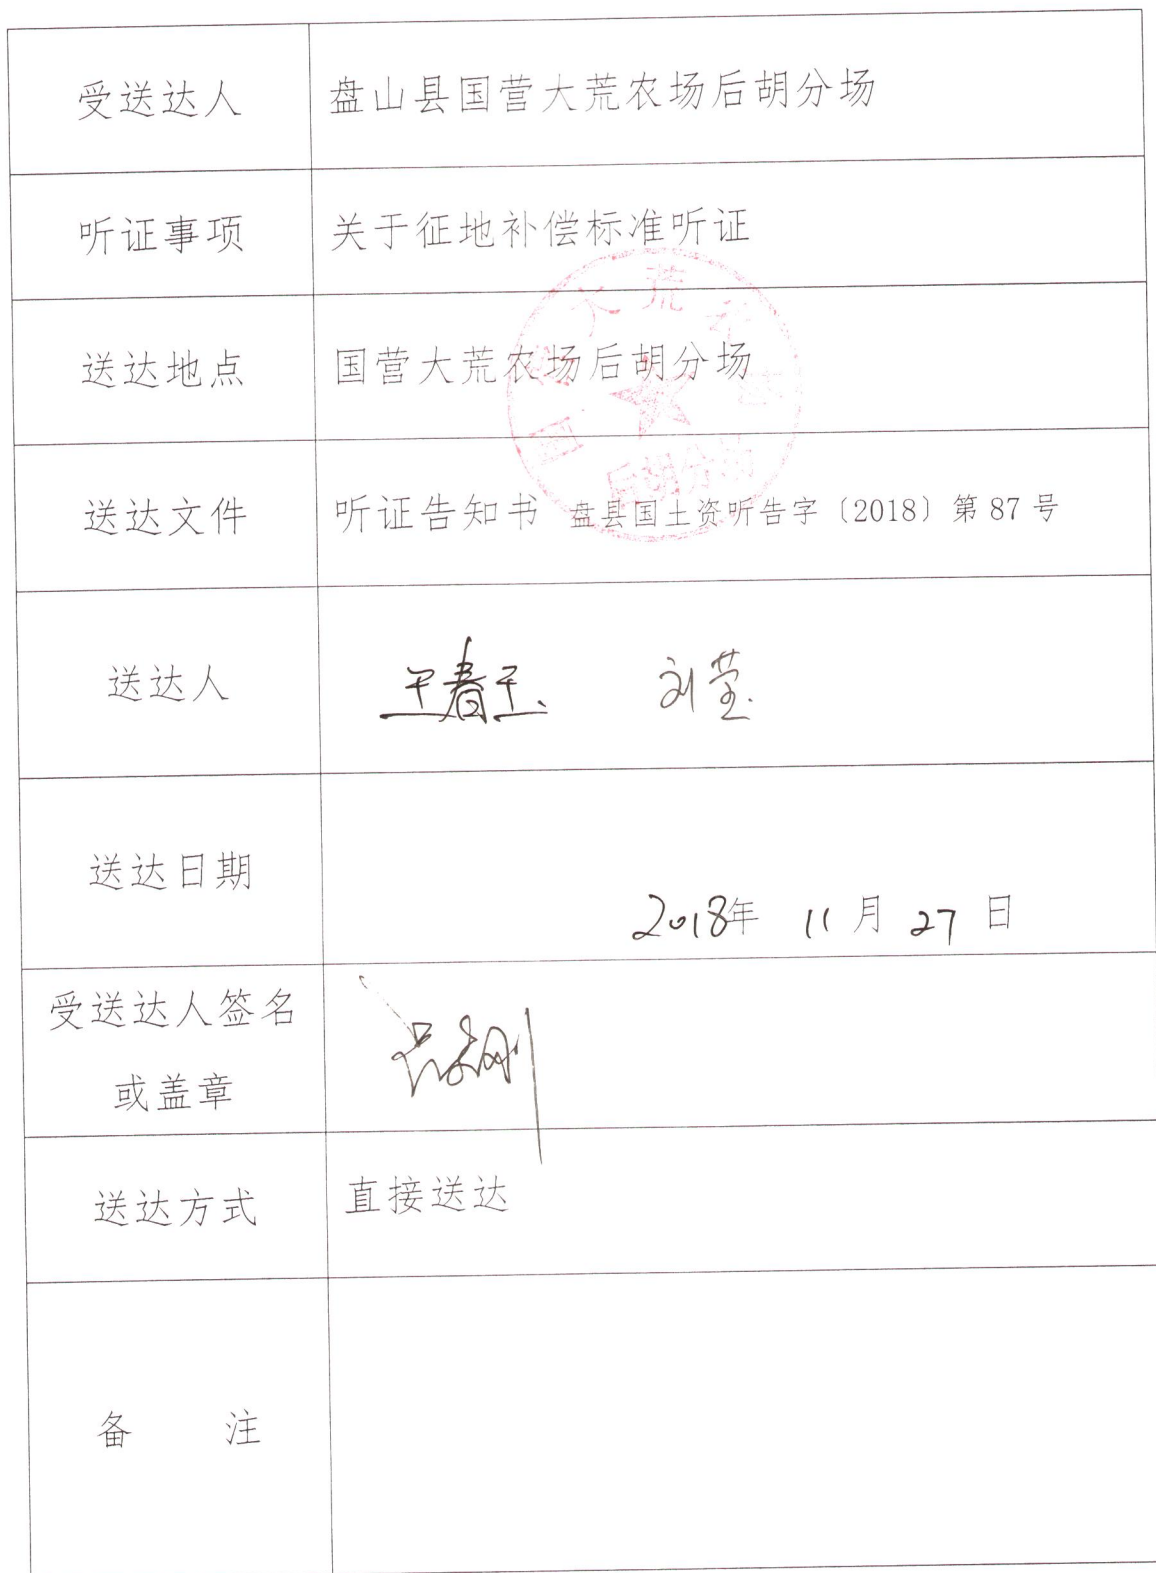 受送达人 盘山县国营大荒农场后胡分场
听证事项 关于征地补偿标准听证
送达地点 国营大荒农场后胡分场
送达文件 听证告知书 盘县国土资听告字〔2018〕第 87 号
送达人 王春玉 刘莹
送达日期
2018年 11 月 27 日
受送达人签名
或盖章
送达方式 直接送达
备 注
大荒农
国营
后胡分场